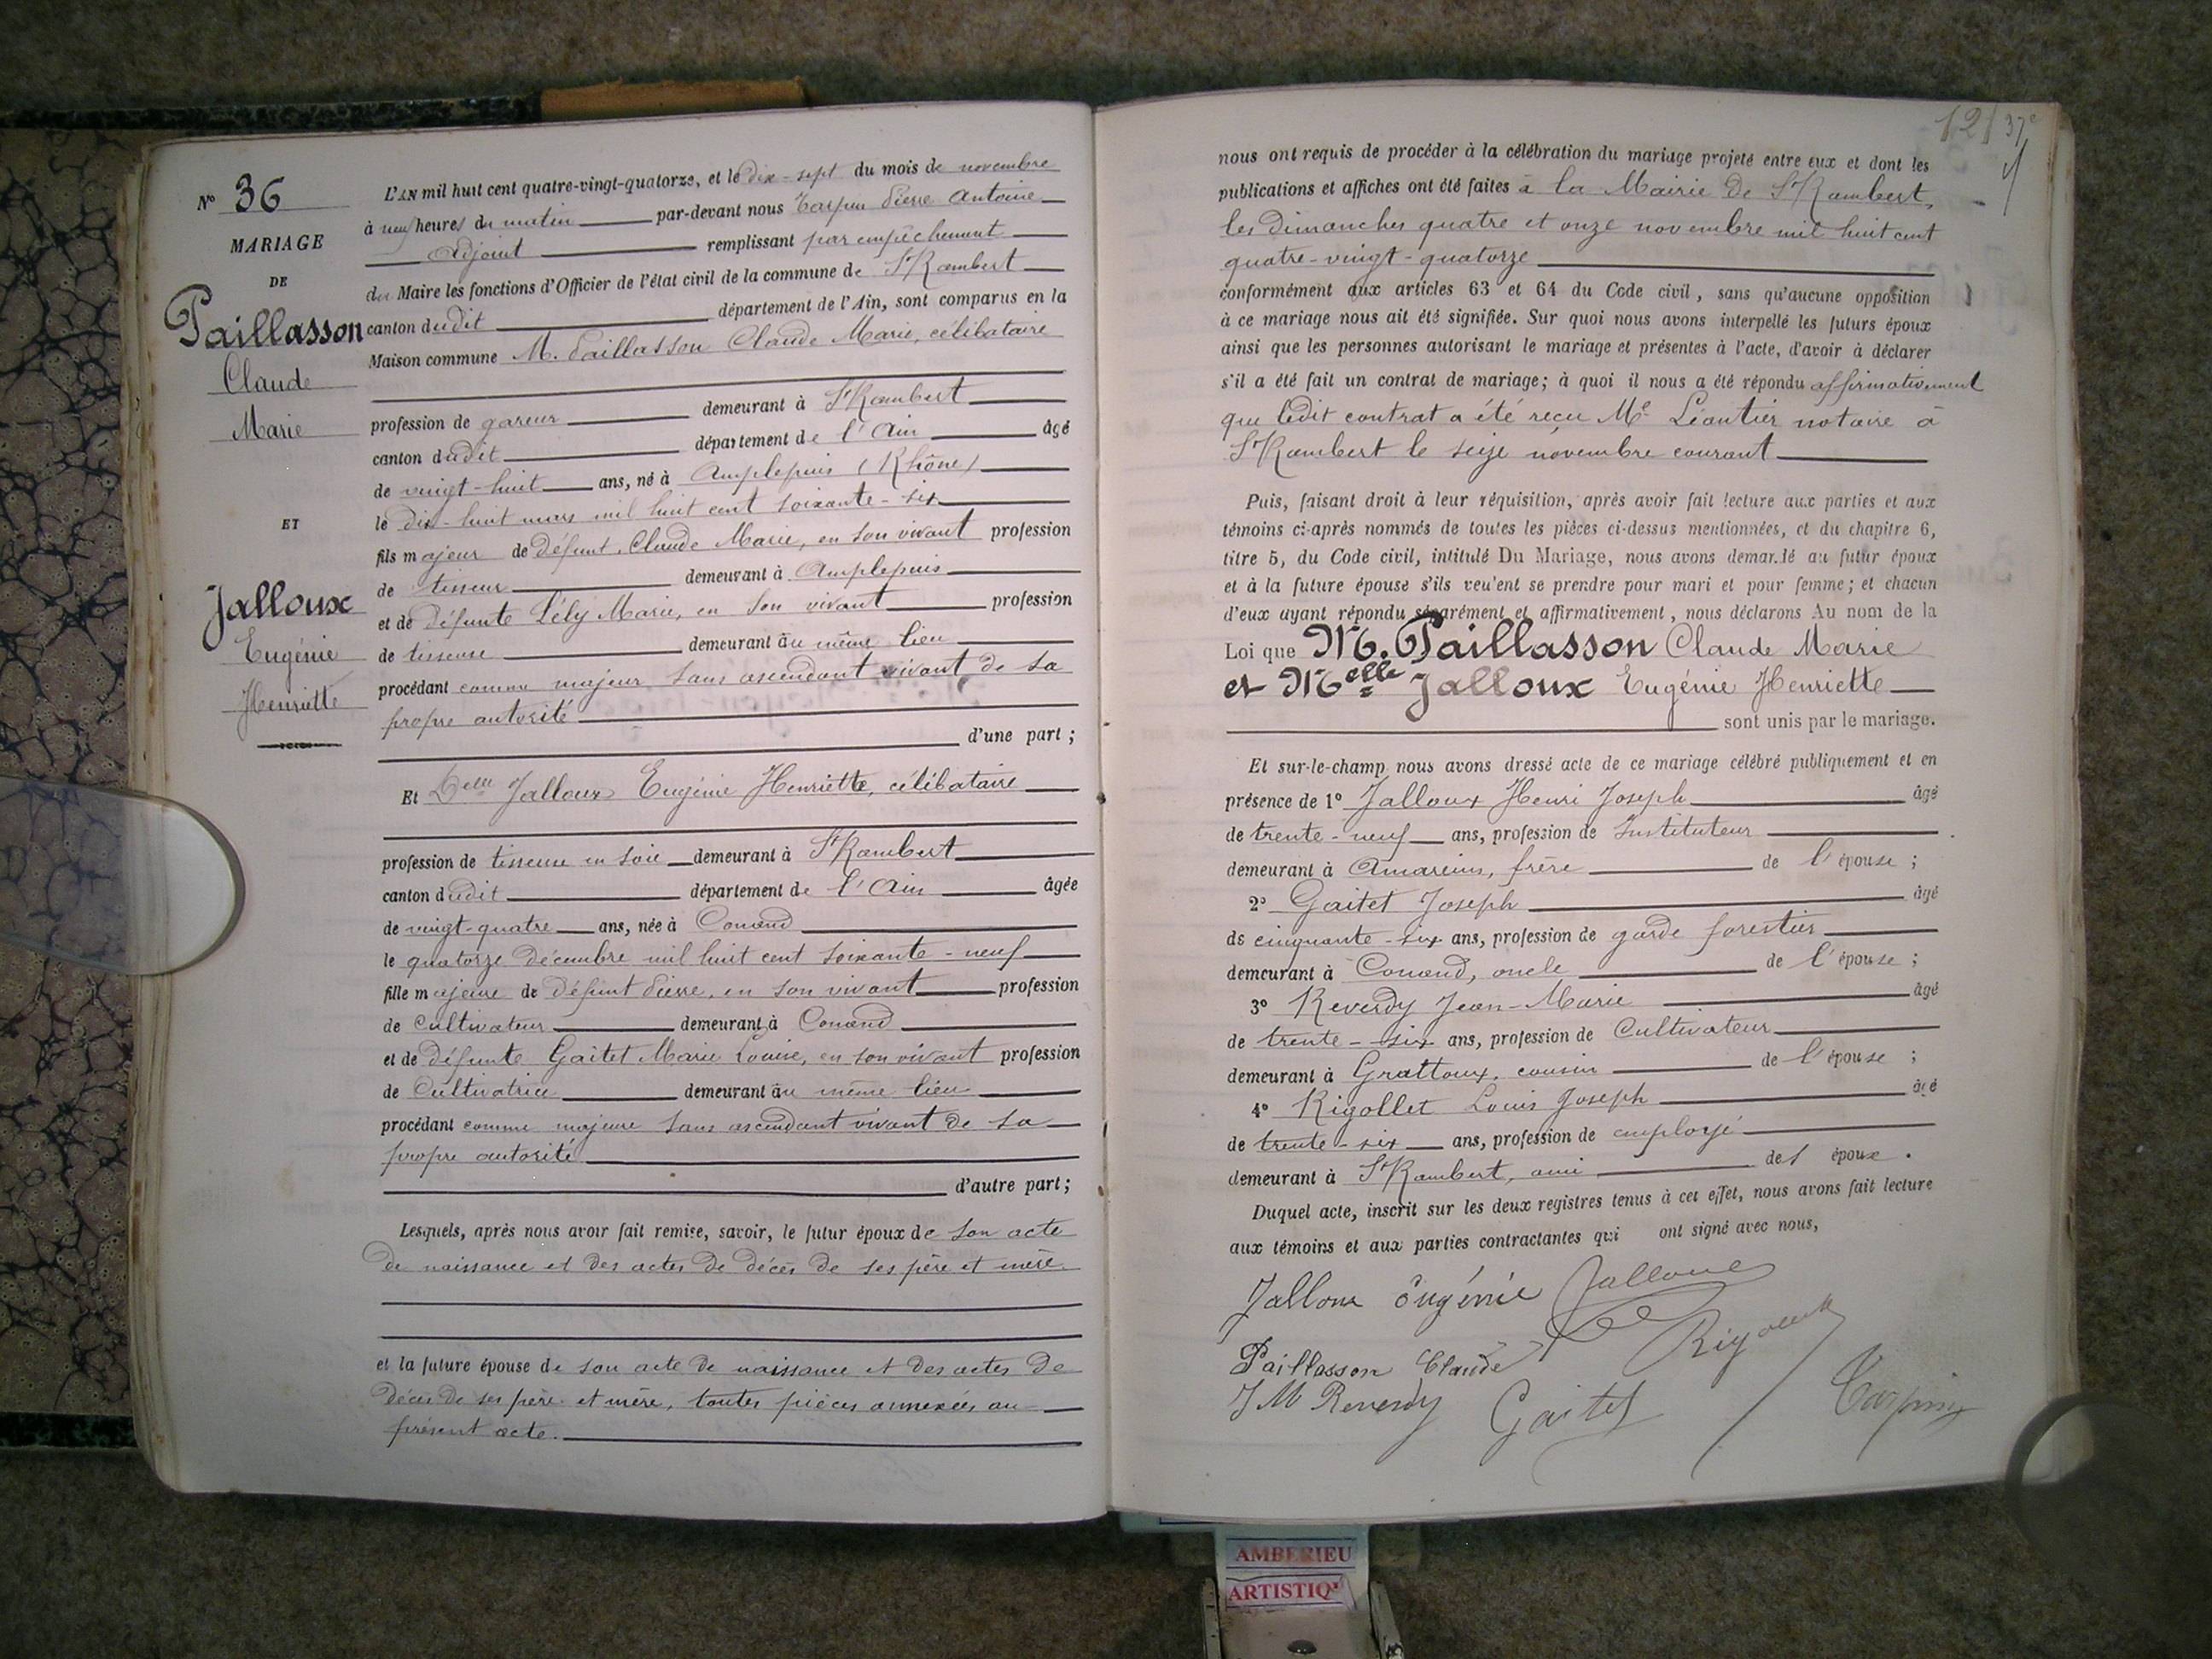 N° 36
MARIAGE
DE
Paillasson
Claude
Marie
ET
Jalloux
Eugénie
Henriette
L'AN mil huit cent quatre-vingt-quatorze, et le dix-sept du mois de novembre
à neuf heures du matin par-devant nous Carpin Pierre Antoine
adjoint remplissant par empêchement
du Maire les fonctions d'Officier de l'état civil de la commune de St Rambert
canton dudit département de l'Ain, sont comparus en la
Maison commune M. Paillasson Claude Marie, célibataire
profession de gareur demeurant à St Rambert
canton dudit département de l'Ain âgé
de vingt-huit ans, né à Amplepuis (Rhône)
le dix-huit mars mil huit cent soixante-six
fils majeur de défunt Claude Marie, en son vivant profession
de tisseur demeurant à Amplepuis
et de défunte Lély Marie, en son vivant profession
de tisseuse demeurant au même lieu
procédant comme majeur sans ascendant vivant de sa
propre autorité
d'une part ;
Et Delle Jalloux Eugénie Henriette, célibataire
profession de tisseuse en soie demeurant à St Rambert
canton dudit département de l'Ain âgée
de vingt-quatre ans, née à Conand
le quatorze décembre mil huit cent soixante-neuf
fille majeure de défunt Pierre, en son vivant profession
de Cultivateur demeurant à Conand
et de défunte Gaitet Marie Louise, en son vivant profession
de Cultivatrice demeurant au même lieu
procédant comme majeure sans ascendant vivant de sa
propre autorité
d'autre part ;
Lesquels, après nous avoir fait remise, savoir, le futur époux de son acte
de naissance et des actes de décès de ses père et mère
et la future épouse de son acte de naissance et des actes de
décès de ses père et mère, toutes pièces annexées au
présent acte.
121 37e
nous ont requis de procéder à la célébration du mariage projeté entre eux et dont les
publications et affiches ont été faites à la Mairie de St Rambert,
les dimanches quatre et onze novembre mil huit cent
quatre-vingt-quatorze
conformément aux articles 63 et 64 du Code civil, sans qu'aucune opposition
à ce mariage nous ait été signifiée. Sur quoi nous avons interpellé les futurs époux
ainsi que les personnes autorisant le mariage et présentes à l'acte, d'avoir à déclarer
s'il a été fait un contrat de mariage ; à quoi il nous a été répondu affirmativement
que ledit contrat a été reçu Me Léautier notaire à
St Rambert le seize novembre courant
Puis, faisant droit à leur réquisition, après avoir fait lecture aux parties et aux
témoins ci-après nommés de toutes les pièces ci-dessus mentionnées, et du chapitre 6,
titre 5, du Code civil, intitulé Du Mariage, nous avons demandé au futur époux
et à la future épouse s'ils veulent se prendre pour mari et pour femme ; et chacun
d'eux ayant répondu séparément et affirmativement, nous déclarons Au nom de la
Loi que M. Paillasson Claude Marie
et Melle Jalloux Eugénie Henriette
sont unis par le mariage.
Et sur-le-champ nous avons dressé acte de ce mariage célébré publiquement et en
présence de 1° Jalloux Henri Joseph âgé
de trente-neuf ans, profession de Instituteur
demeurant à Amareins, frère de l'épouse ;
2° Gaitet Joseph âgé
de cinquante-six ans, profession de garde forestier
demeurant à Conand, oncle de l'épouse ;
3° Reverdy Jean-Marie âgé
de trente-six ans, profession de Cultivateur
demeurant à Grattoux, cousin de l'épouse ;
4° Rigollet Louis Joseph âgé
de trente-six ans, profession de employé
demeurant à St Rambert, ami de l'époux.
Duquel acte, inscrit sur les deux registres tenus à cet effet, nous avons fait lecture
aux témoins et aux parties contractantes qui ont signé avec nous,
Jalloux Eugénie Jalloux
Paillasson Claude
J M Reverdy Gaitet Carpin
AMBERIEU
ARTISTIQ